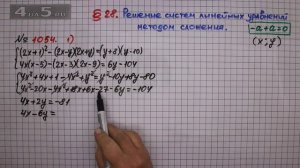 4на5.ru
§ 28. Решение систем линейных уравнений
методом сложения.
-a+a=0
№ 1054. 1)
(x; y)
{(2x+1)² - (2x-y)(2x+y) = (y+8)(y-10)
4x(x-5) - (2x-3)(2x-9) = 6y-104
{4x²+4x+1-4x²+y² = y²-10y+8y-80
4x²-20x-4x²+18x+6x-27-6y=-104
4x+2y=-81
4x-6y=